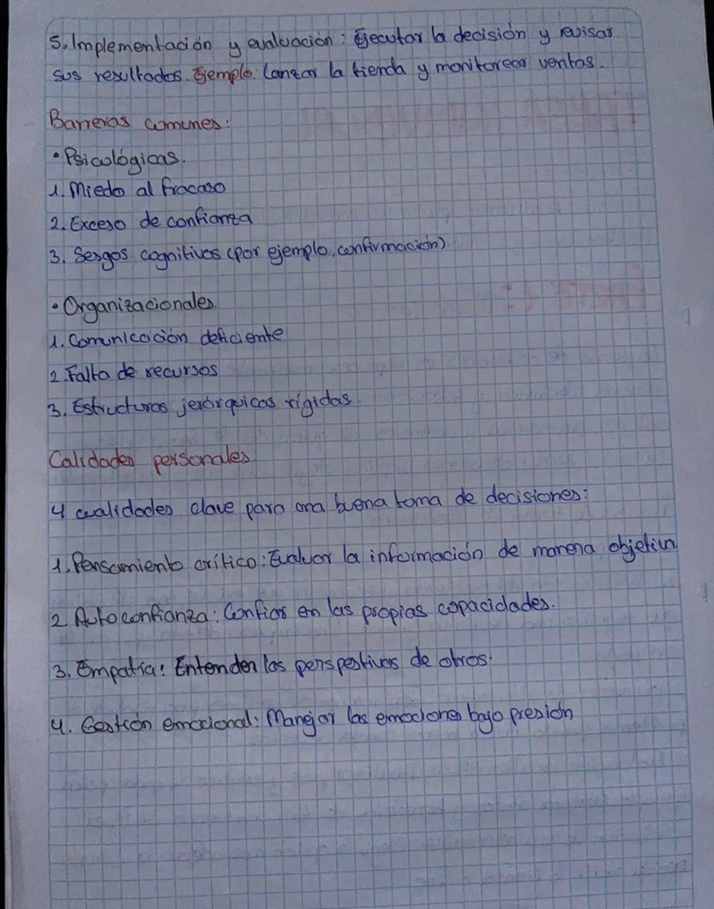 5. Implementación y evaluación: Ejecutar la decisión y revisar
sus resultados. Ejemplo: Lanzar la tienda y monitorear ventas.
Barreras comunes:
• Psicológicas.
1. Miedo al fracaso
2. Exceso de confianza
3. Sesgos cognitivos (por ejemplo, confirmación)
• Organizacionales.
1. Comunicación deficiente
2. Falta de recursos
3. Estructuras jerárquicas rígidas
Calidades personales
4 cualidades clave para una buena toma de decisiones:
1. Pensamiento crítico: Evaluar la información de manera objetiva
2 Autoconfianza: Confiar en las propias capacidades.
3. Empatía: Entender las perspestivas de otros.
4. Gestión emocional: Manejar las emociones bajo presión